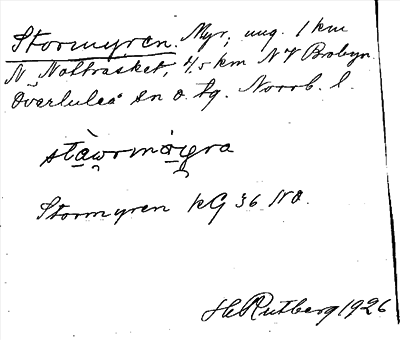 Stormyren. Myr, ung. 1 km
N Nattrasket, 4,5 km NV Brobyn.
Överluleå sn o. tg. Norrb. l.
Stormyren kG 36 NO.
H Rutberg 1926